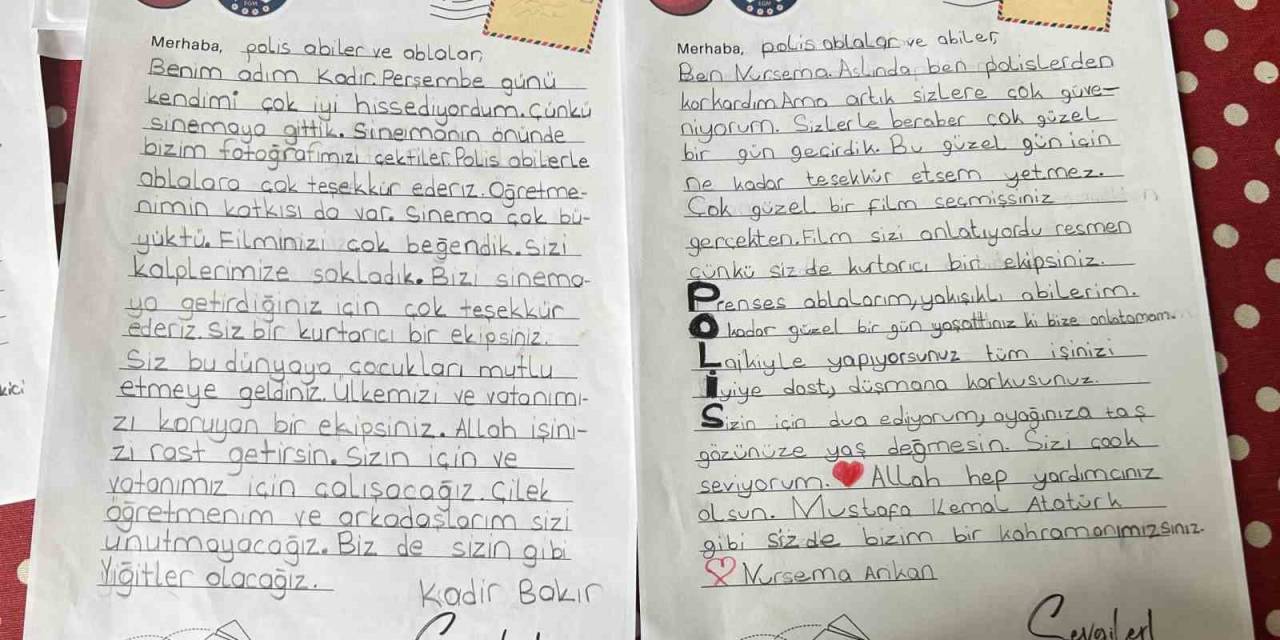 EGM
Merhaba, polis abiler ve ablalar,
Benim adım Kadir. Perşembe günü
kendimi çok iyi hissediyordum. Çünkü
sinemaya gittik. Sinemanın önünde
bizim fotoğrafımızı çektiler. Polis abilerle
ablalara çok teşekkür ederiz. Öğretme-
nimin katkısı da var. Sinema çok bü-
yüktü. Filminizi çok beğendik. Sizi
kalplerimize sakladık. Bizi sinema-
ya getirdiğiniz için çok teşekkür
ederiz. Siz bir kurtarıcı bir ekipsiniz.
Siz bu dünyaya çocukları mutlu
etmeye geldiniz. Ülkemizi ve vatanımı-
zı koruyan bir ekipsiniz. Allah işini-
zi rast getirsin. Sizin için ve
vatanımız için çalışacağız. Çilek
öğretmenim ve arkadaşlarım sizi
unutmayacağız. Biz de sizin gibi
Yiğitler olacağız.
Kadir Bakır
EGM
Merhaba, polis ablalar ve abiler,
Ben Nursema. Aslında ben polislerden
korkardım Ama artık sizlere çok güve-
niyorum. Sizlerle beraber çok güzel
bir gün geçirdik. Bu güzel gün için
ne kadar teşekkür etsem yetmez.
Çok güzel bir film seçmişsiniz
gerçekten. Film sizi anlatıyordu resmen
çünkü siz de kurtarıcı biri ekipsiniz.
Prenses ablalarım, yakışıklı abilerim.
O kadar güzel bir gün yaşattınız ki bize anlatamam.
Layıkıyle yapıyorsunuz tüm işinizi
İyiye dost, düşmana korkusunuz.
Sizin için dua ediyorum, ayağınıza taş
gözünüze yaş değmesin. Sizi çook
seviyorum. Allah hep yardımcınız
olsun. Mustafa Kemal Atatürk
gibi siz de bizim bir kahramanımızsınız.
Nursema Arıkan
kici